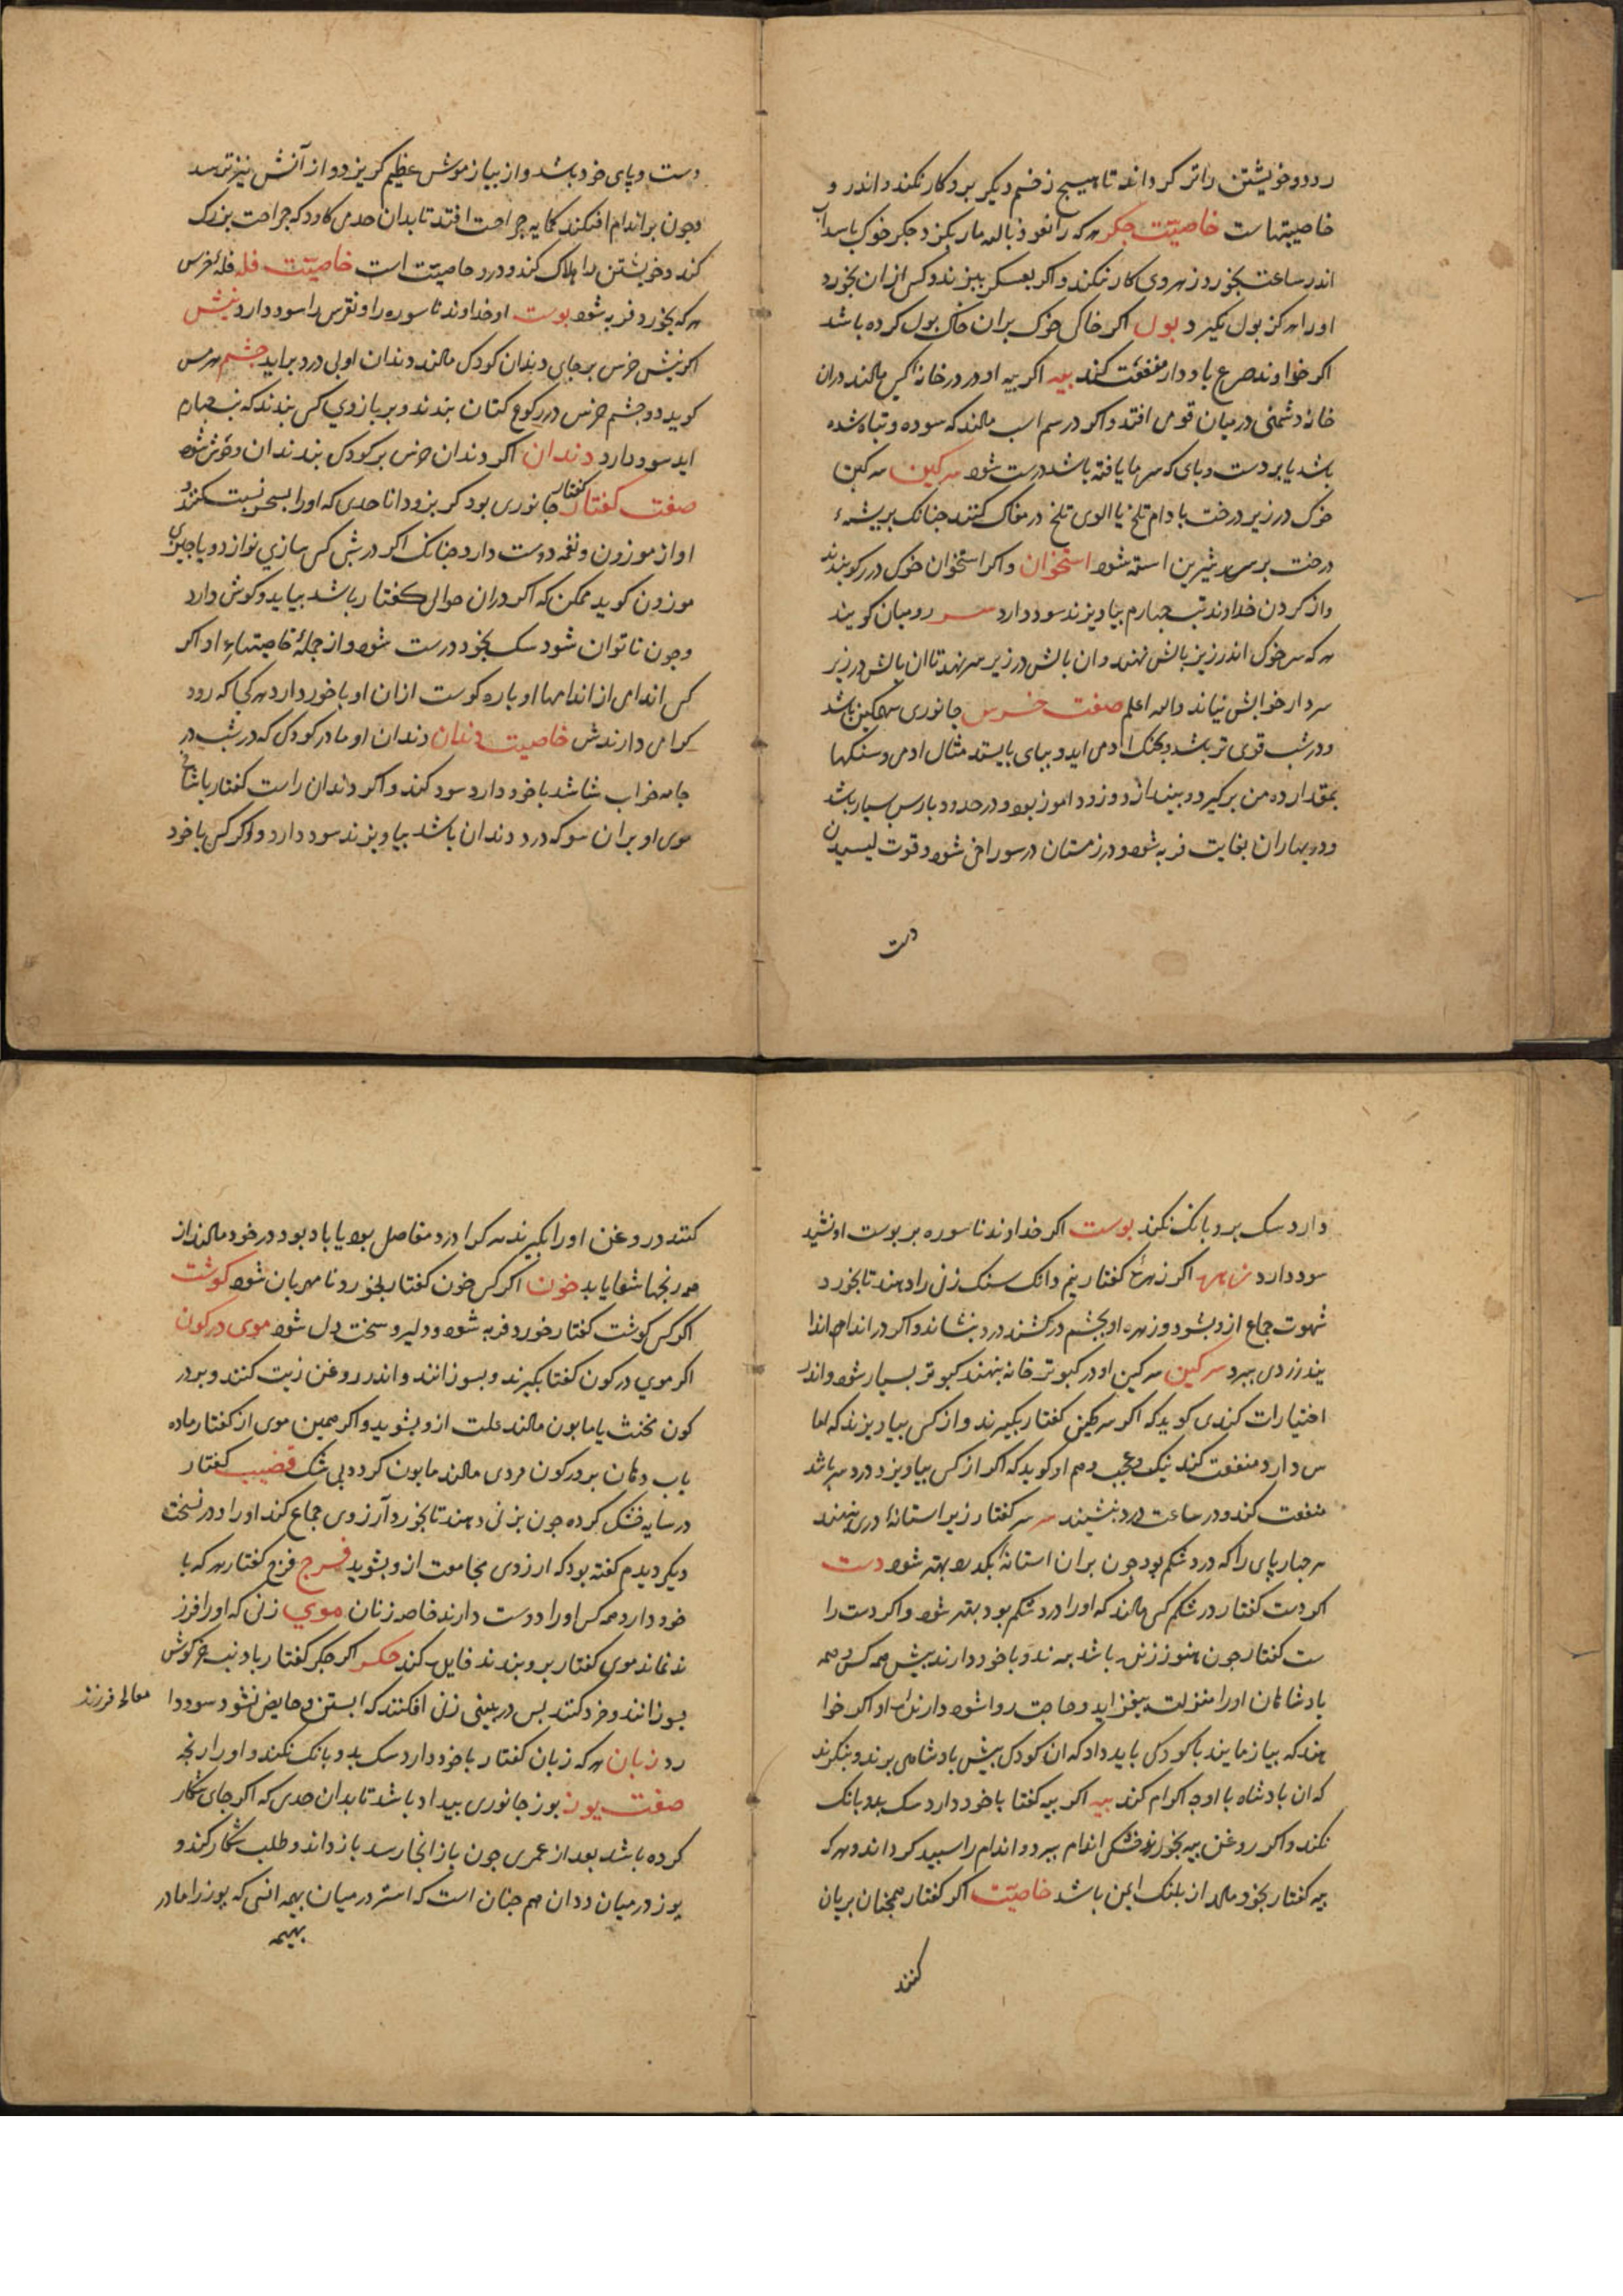 رود و خویشتن را تر کرداند تا هیچ زخم دیکر برو کار نکند و اندر و
خاصیتهاست خاصیت جکر هر که را نعوذ بالله مار بکزد جکر خوک با سداب
اندر ساعت بخورد زهر وی کار نکند و اکر بعسکر بپزند و کس ازان بخورد
او را هرکز بول نکیرد بول اکر خاکی خوک بران خاک بول کرده باشد
اکر خداوند صرع با خود دارد منفعت کند پیه اکر پیه او در در خانه کس مالند دران
خانه دشمنی درمیان قومی افتد و اکر در سم اسب مالند که سوده و تباه شده
باشد یا بر دست و پای که سرما یافته باشد درست شود سرکین سرکین
خوک در زیر درخت بادام تلخ یا الوی تلخ در مغاک کنند جنانک بریشهء
درخت برسد شیرین استه شود استخوان و اکر استخوان خوک در رکو بندند
و از کردن خداوند تب چهارم بیاویزند سود دارد سر رومیان کویند
هر که سر خوک اندر زیر بالش نهند و ان بالش در زیر سر نهد تا ان بالش در زیر
سر دارد خوابش نیاند والله اعلم صفت خرس جانوری سهمکین باشد
و در شب قوی تر باشد و بجنک ادمی اید و بپای بایستد مثال ادمی و سنکها
بمقدار ده من برکیرد و بیندازد و زود اموز بود و در حدود پارس بسیار باشد
و در بهاران بغایت فربه شود و در زمستان در سوراخی شود و قوت لیسیدن
دست
دست و پای خود باشد و از بیاز موش عظیم کریزد و از آتش نیز ترسد
و چون بر اندام افکند کما یه جراحت افتد تا بدان حدی کاود که جراحت بزرک
کند و خویشتن را هلاک کند و درو خاصیت است خاصیت فله فله خرس
هر که بخورد فربه شود بوست او خداوند ناسوره را و نقرس را سود دارد نیش
اکر نیش خرس بر جای دندان کودک مالند دندان او بی درد براید چشم هرمس
کوید دو چشم خرس در رکوع کتان بندند و بر بازوی کس بندند که تب چهارم
اید سود دارد دندان اکر دندان خرس بر کودک بندند ان و خوش شود
صفت کفتار کفتار جانوری بود کربز و دانا حدی که او را بسحر نسبت کنند و
اواز موزون و نغمه دوست دارد چنانک اکر در شب کس سازی نوازد و یا چیزی
موزون کوید ممکن که اکر دران حوالی کفتار باشد بیاید و کوش دارد
و چون ناتوان شود سک بخورد درست شود و از جملهٔ خاصیتهاء او اکر
کس اندامی از اندامها او پاره کوست ازان او با خود دارد هر کجا که رود
کرامی دارندش خاصیت دندان دندان او مادر کودک که در شب در
جامه خواب شاشد با خود دارد سود کند و اکر دندان راست کفتار با شاخ
موی او بران سو که درد دندان باشد بیاویزند سود دارد و اکر کس با خود
دارد سک برو بانک نکند بوست اکر خداوند ناسوره بر بوست او نشیند
سود دارد زهره اکر زهرهٔ کفتار نیم دانک سنک زنی را دهند تا بخورد
شهوت جماع ازو بشود و زهره او بچشم درکشند درد بنشاند و اکر در اندام اندا
یند زردی ببرد سرکین سرکین او در کبوتر خانه بنهند کبوتر بسیار شود و اندر
اختیارات کندی کوید که اکر سرکین کفتار بکیرند و از کس بیاویزند که اما
س دارد منفعت کند نیک و عجب و هم او کوید که اکر از کس بیاویزد درد سر باشد
منفعت کند و در ساعت درد بنشیند سر سر کفتار زیر استانهٔ دری نهند
هر چهارپای را که درد شکم بود چون بران استانه بکذرد بهتر شود دست
اکر دست کفتار در شکم کس مالند که او را درد شکم بود بهتر شود و اکر دست را
ست کفتار چون هنوز زنده باشد ببرند و با خود دارند پیش همه کس و همه
پادشاهان او را منزلت بیفزاید و حاجت روا شود دارنده او اکر خوا
هند که بیازمایند با کودکی باید داد که ان کودک پیش پادشاهی برند و بنکرند
که ان پادشاه با او چه اکرام کند پیه اکر پیه کفتار با خود دارد سک بدو بانک
نکند و اکر روغن پیه بخورد خشکی اندام ببرد و اندام را سپید کرداند و هر که
پیه کفتار بخود مالد از پلنک ایمن باشد خاصیت اکر کفتار همچنان بریان
کنند
کنند و روغن او را بکیرند هر کرا درد مفاصل بود یا باد بود در خود مالند از
همه رنجها شفا یابد خون اکر کس خون کفتار بخورد نا مهربان شود کوشت
اکر کس کوشت کفتار خورد فربه شود و دلیر و سخت دل شود موی در کون
اکر موی در کون کفتار بکیرند و بسوزانند و اندر روغن زیت کنند و بر در
کون مخنث یا مابون مالند علت ازو بشوید و اکر همین موی از کفتار ماده
باب دهان بر در کون مردی مالند مابون کردد بی شک قضیب کفتار
در سایه خشک کرده چون بزنی دهند تا بخورد آرزوی جماع کند او را و در نسخت
دیکر دیدم کفته بود که ارزوی مجامعت ازو بشوید فرج فرج کفتار هر که با
خود دارد همه کس او را دوست دارند خاصه زنان موی زنی که او را فرز
ند نماند موی کفتار برو بندند فایل کند جکر اکر جکر کفتار با دنب خرکوش
بسوزانند و خرد کنند پس در بینی زنی افکنند که ابستن و حایض نشود سود دا
رد زبان هر که زبان کفتار با خود دارد سک بدو بانک نکند و او را رنجه
صفت یوز یوز جانوری بیداد باشد تا بدان حدی که اکر جای شکار
کرده باشد بعد از عمری چون باز انجا رسد باز داند و طلب شکار کند و
یوز درمیان ددان هم چنان است که استر درمیان بهیمه انسی که یوز را مادر
بهیمه